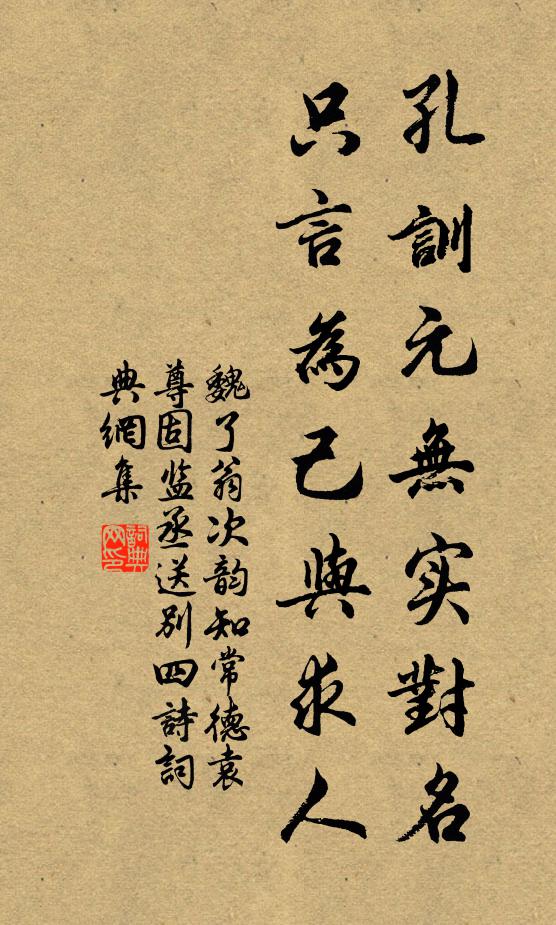 孔訓元無实對名
只言為己與求人
魏了翁次韵知常德袁
尊固监丞送别四詩詞
典網集
詞典网印